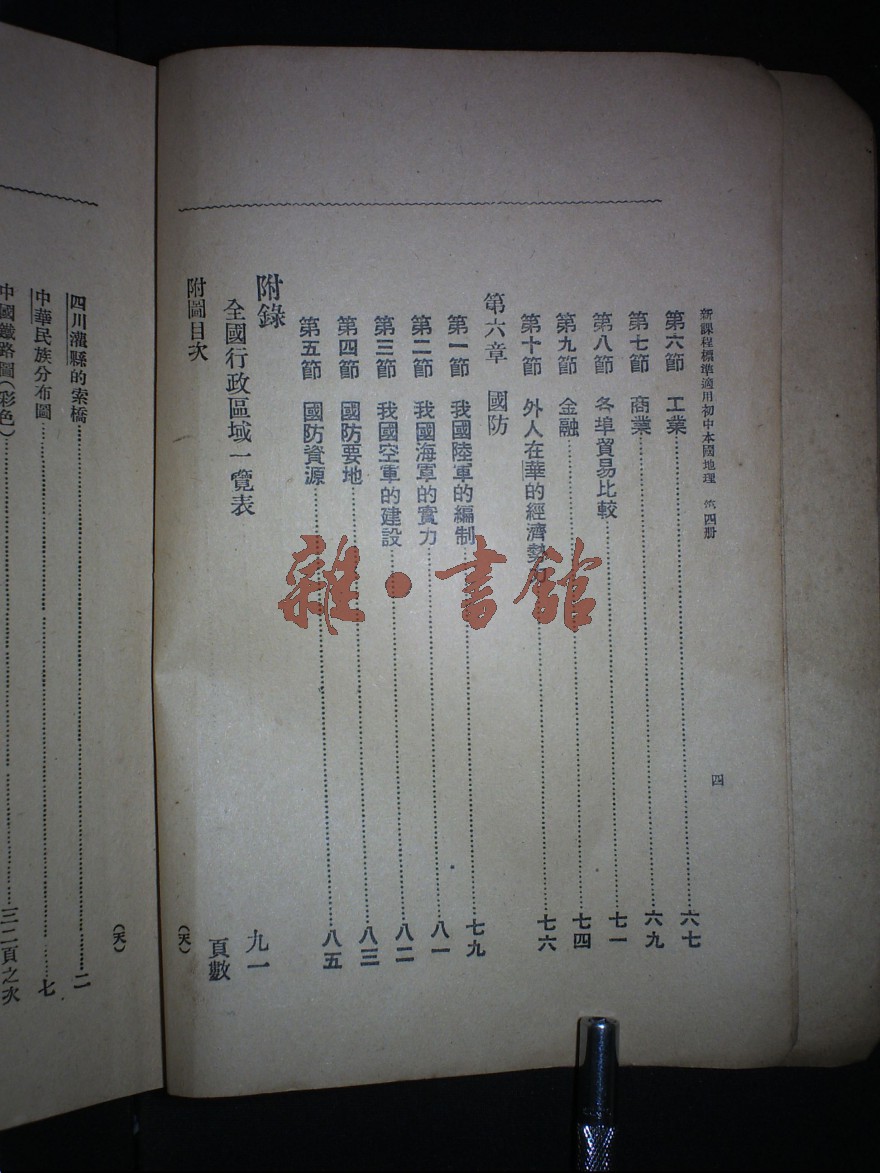 新課程標準適用初中本國地理 第四册
四
第六節 工業 六七
第七節 商業 六九
第八節 各埠貿易比較 七一
第九節 金融 七四
第十節 外人在華的經濟勢 七六
第六章 國防
第一節 我國陸軍的編制 七九
第二節 我國海軍的實力 八一
第三節 我國空軍的建設 八二
第四節 國防要地 八三
第五節 國防資源 八五
附錄
全國行政區域一覽表 九一
附圖目次
頁數
(天)
(天)
四川灌縣的索橋 二
中華民族分布圖 七
中國鐵路圖(彩色) 三二頁之次
雜·書館